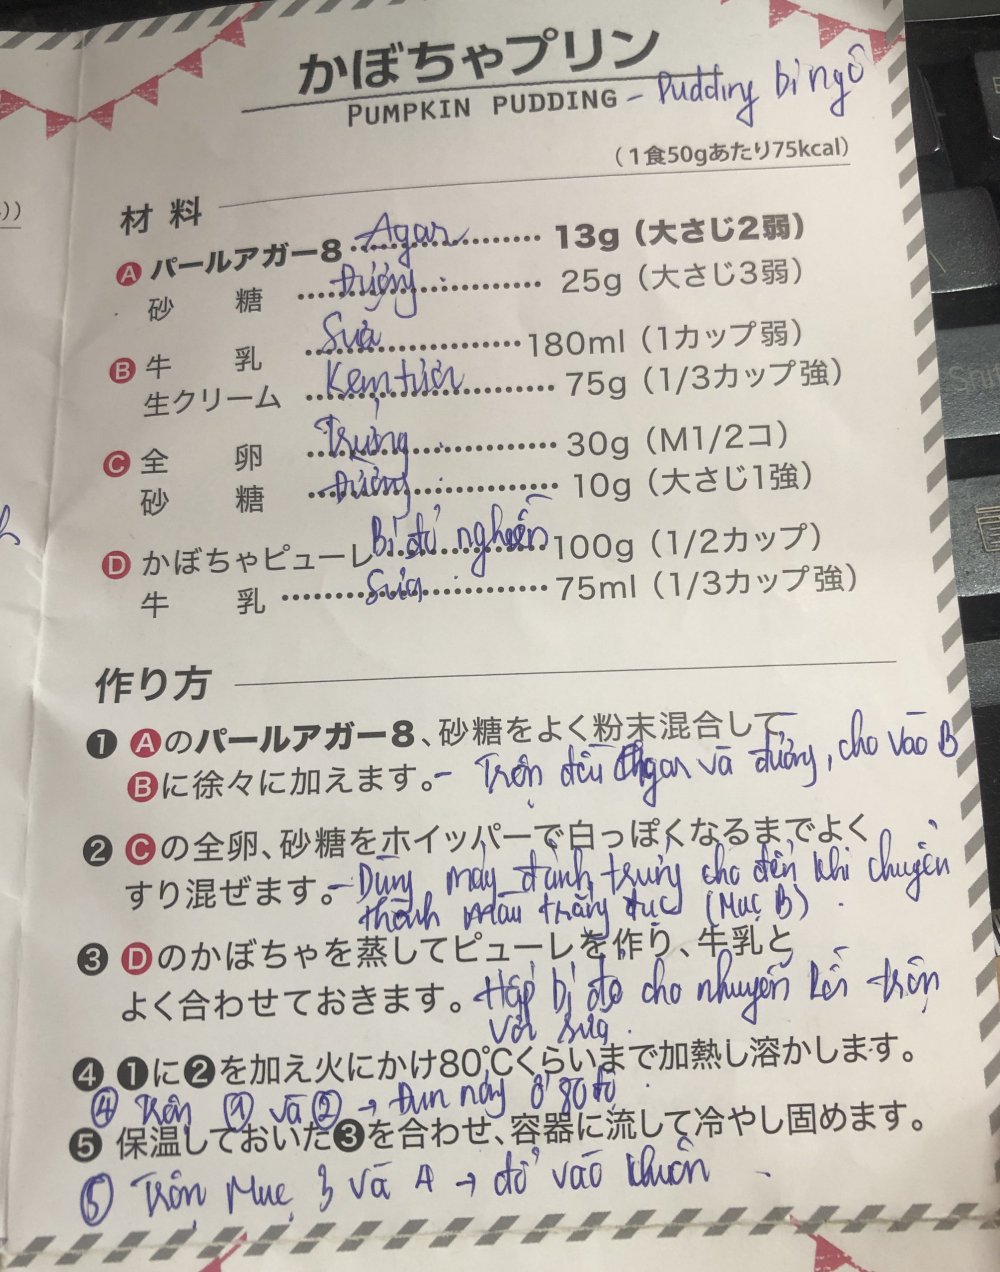 かぼちゃプリン
PUMPKIN PUDDING - Pudding bí ngô
(1食50gあたり75kcal)
材 料
A パールアガー8 Agar 13g(大さじ2弱)
砂 糖 Đường 25g(大さじ3弱)
B 牛 乳 Sữa 180ml(1カップ弱)
生クリーム Kem tươi 75g(1/3カップ強)
C 全 卵 Trứng 30g(M1/2コ)
砂 糖 Đường 10g(大さじ1強)
D かぼちゃピューレ Bí đỏ nghiền 100g(1/2カップ)
牛 乳 Sữa 75ml(1/3カップ強)
作り方
❶ Aのパールアガー8、砂糖をよく粉末混合して、
Bに徐々に加えます。- Trộn đều Agar và đường, cho vào B
❷ Cの全卵、砂糖をホイッパーで白っぽくなるまでよく
すり混ぜます。- Dùng máy đánh trứng cho đến khi chuyển
thành màu trắng đục (Mục B).
❸ Dのかぼちゃを蒸してピューレを作り、牛乳と
よく合わせておきます。Hấp bí đỏ cho nhuyễn rồi trộn
với sữa.
❹ ❶に❷を加え火にかけ80℃くらいまで加熱し溶かします。
④ Trộn ① và ② → Đun nóng ở 80 độ.
❺ 保温しておいた❸を合わせ、容器に流して冷やし固めます。
⑤ Trộn Mục 3 và 4 → đổ vào khuôn